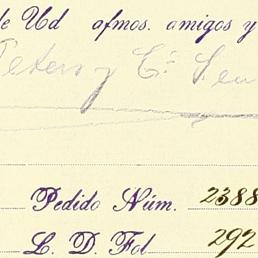 de Ud afmos. amigos y
Peters y Cª
Pedido Núm. 2388
L. D. Fol 292